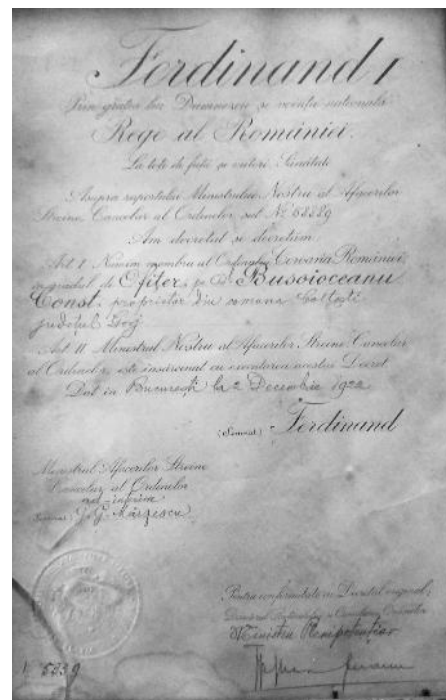 Ferdinand I
Prin gratia lui Dumnezeu și voința națională
Rege al României.
La toți de față și viitori, Sănătate
Asupra raportului Ministrului Nostru al Afacerilor
Streine, Cancelar al Ordinelor, sub No 68229
Am decretat și decretăm:
Art. I. Numim membru al Ordinului Coroana României
în gradul de Ofițer, pe D. Busoioceanu
Const. proprietar din comuna
județul Gorj
Art. II. Ministrul Nostru al Afacerilor Streine, Cancelar
al Ordinelor, este însărcinat cu executarea acestui Decret
Dat în București la 2 Decembrie 1922
(Semnat) Ferdinand
Ministrul Afacerilor Streine
Cancelar al Ordinelor
ad-interim
Semnat: G. G. Mârzescu
Pentru conformitate cu Decretul original,
Directorul și Cancelariei Ordinelor
Ministru Plenipotențiar
N 5939